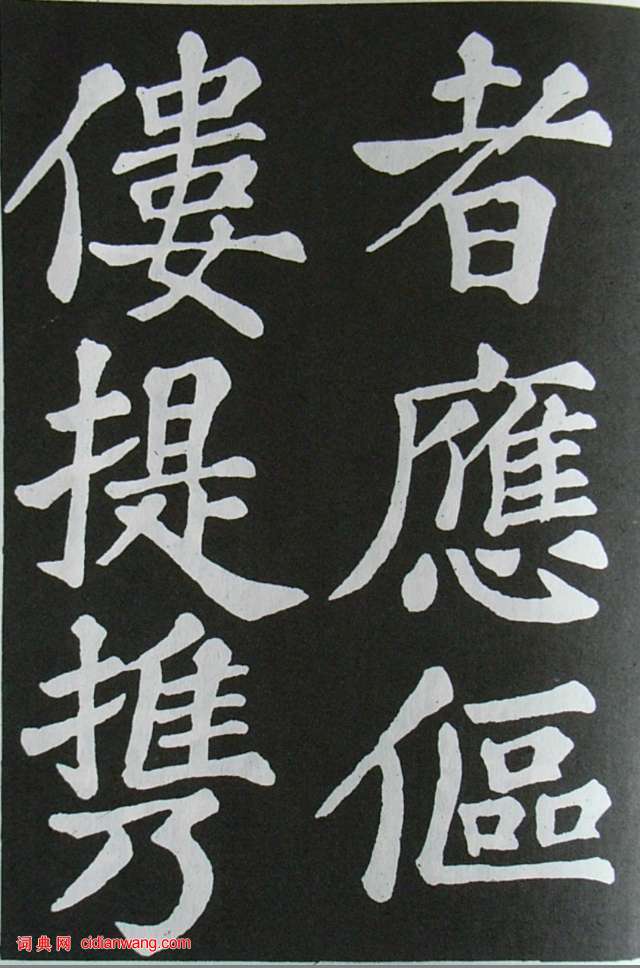 者應傴
僂提携
词典网 cidianwang.com